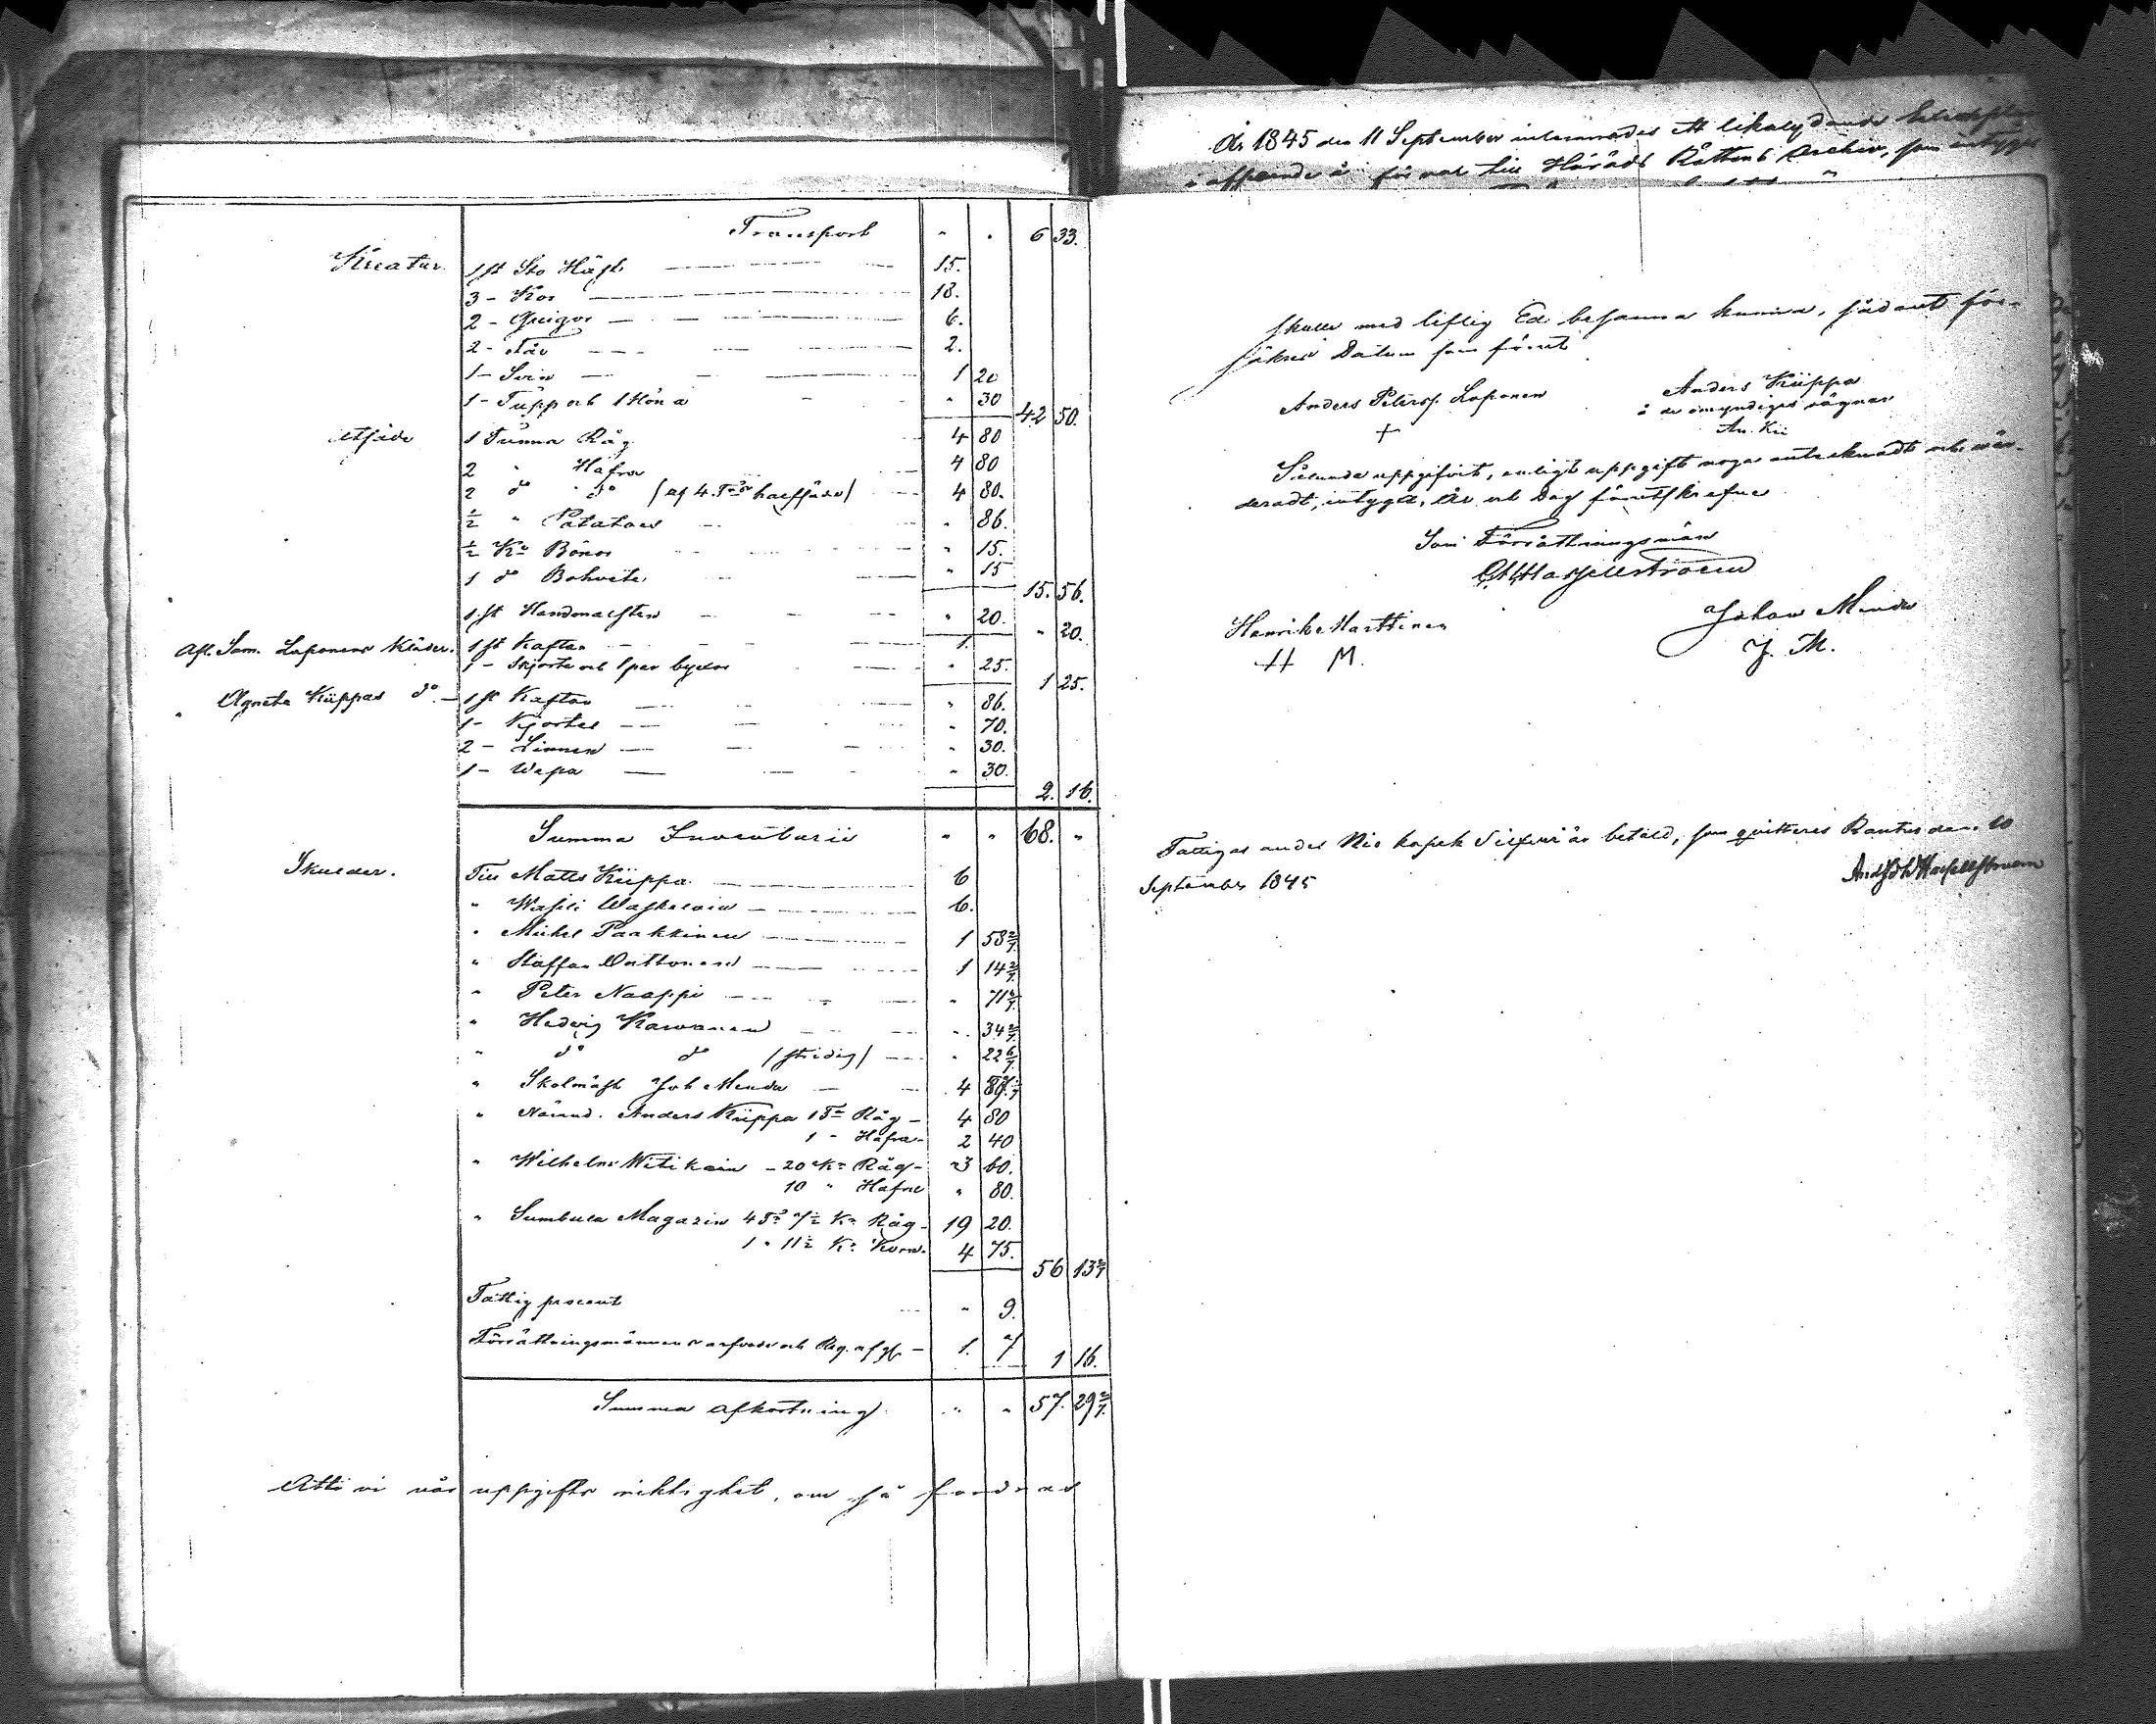 Transport " " 6 33.
Kreatur. 1 st Sto Häst 15.
3 - Kor 18.
2 - Qvigor 6.
2 - Får 2.
1 - Svin 1 20
1 - Tupp och 1 Höna " 30 42 50.
Utsäde 1 Tunna Råg 4 80
2 " Hafra 4 80
2 do do (af 4 T:or 4 80.
1/2 " Potatoes " 86.
1/2 K:e Bönor " 15.
1 do Bohvete " 15 15. 56.
1 st " 20. " 20.
Afl. Sam. Laponens Kläder. 1 st Kaftan 1.
1 - Skjorta och 1 par byxor " 25. 1 25.
" Agneta Kiippas do. 1 st Kaftan " 86.
1 - Kjortel " 70.
2 - Linnen " 30.
1 - Wepa " 30. 2. 16.
Summa Inventarii " " 68. "
Skulder. Till Matts Kiippa 6
" Wasili 6.
" Mickel Paakkinen 1 58 2/7.
" Staffan 1 14 2/7.
" Peter Naappi " 71 3/7.
" Hedvig " 34 2/7.
" do do (stridig) " 22 6/7.
" Skolmäst Joh Mendu 4
" Nämnd. Anders Kiippa 1 T:a Råg - 4 80
1 - Hafra - 2 40
" Wilhelm Witikain - 20 K:r Råg - 3 60.
10 " Hafra " 80.
" Sumbula Magazin 4 T:r 7 1/2 K:r Råg - 19 20.
1 " 11 1/2 K:r Korn. 4 75. 56 13 2/7
Fattig procent " 9.
Förrättningsmännens arfvode och 1. 7 1 16.
Summa afkortning " " 57. 29 2/7.
Att vi vår uppgifts riktighet, om så fordras
År 1845 den 11 September inlemnades ett likalydande
för mal till Härads Rättens Archiv, som intygas
skulle med liflig Ed besanna kunna, sådant för-
säkras Datum som förut
Anders Peterss. Laponen Anders Kiippa
+ å de omyndigas vägnar
An. Kii
Sålunda uppgifvit, enligt uppgift noga antecknadt och vär-
deradt, intyga, År och Dag förutskrefne
Som Förrättningsmän
Hasselström
Henrik Marttinen Johan Mendu
H M. J. M.
Fattigas andel Nio kopek Silfver är betald, som qvitteras Rautus den 10
September 1845